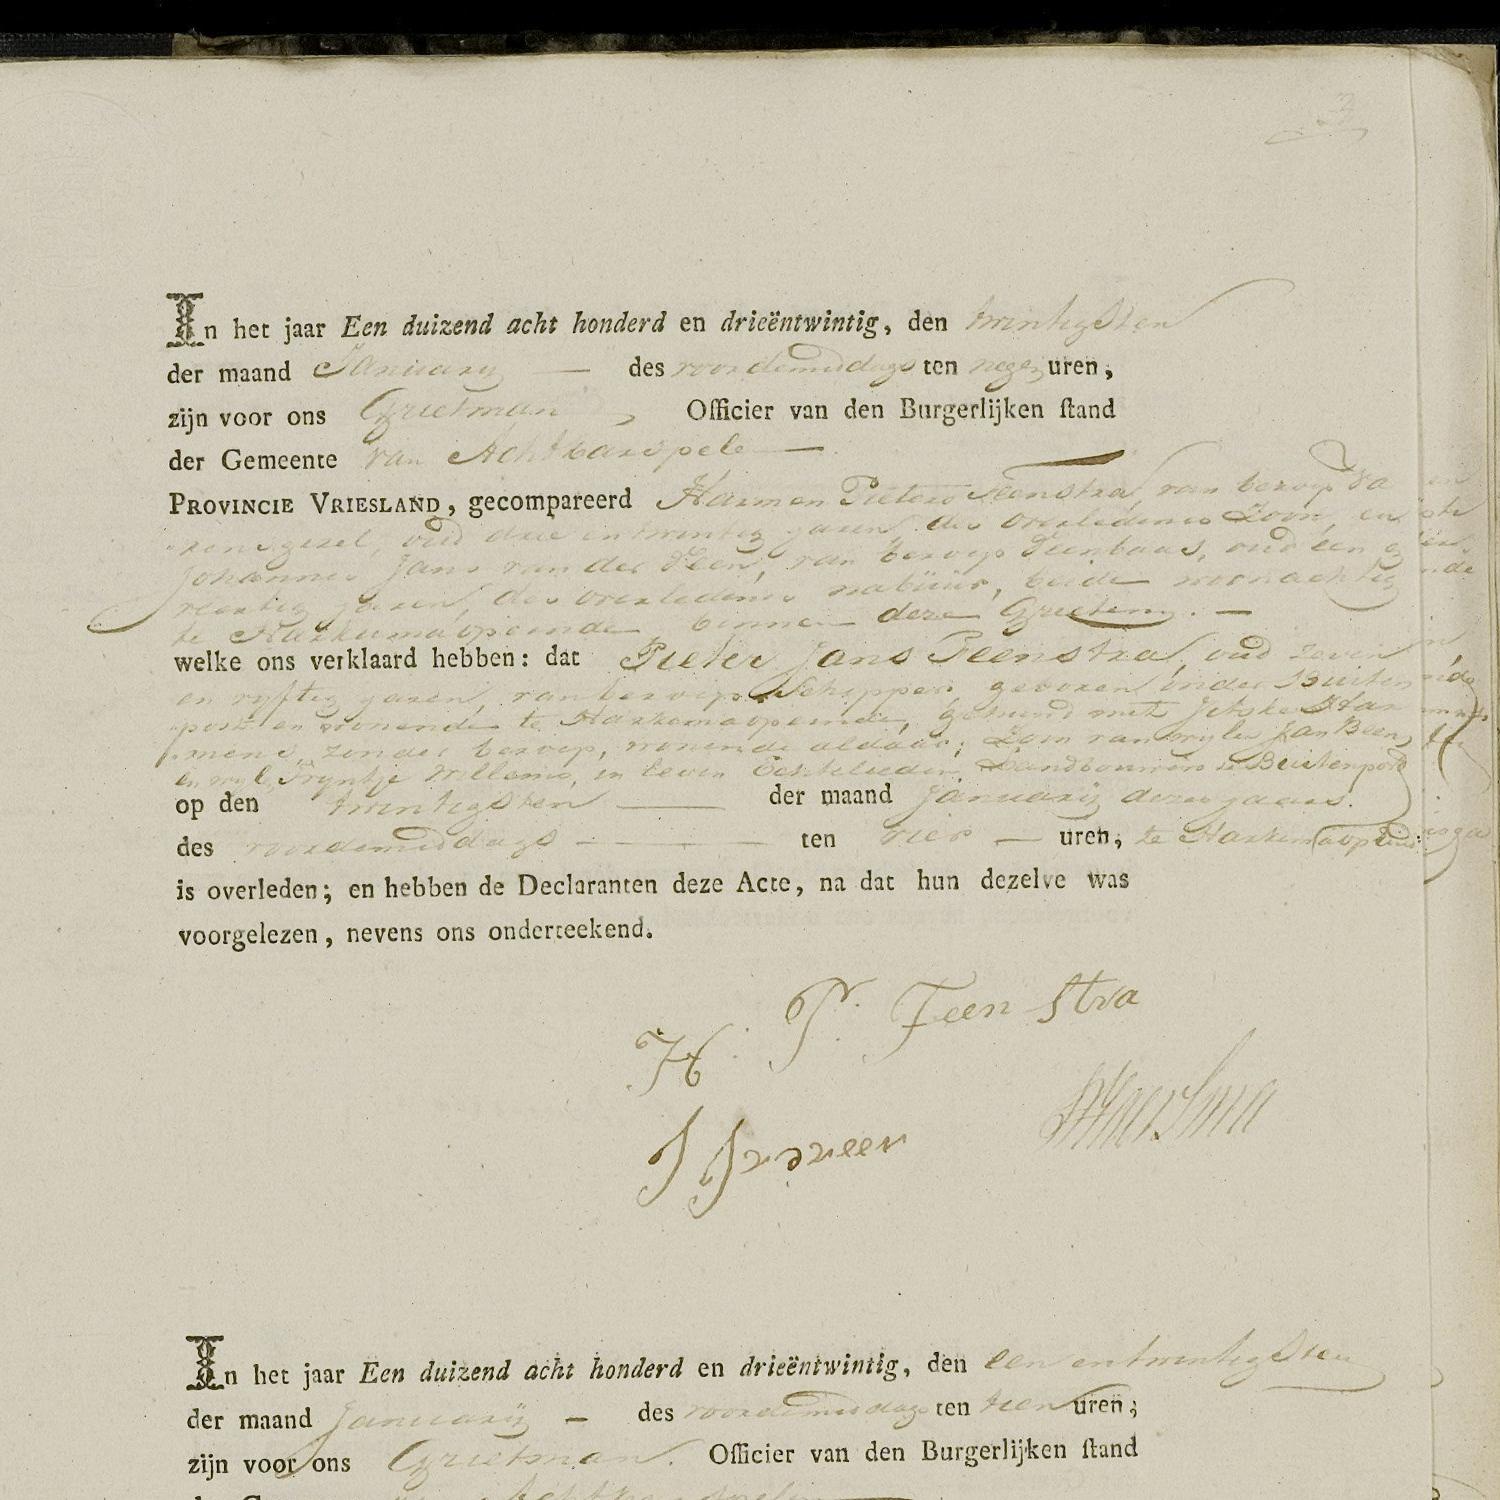 3
In het jaar Een duizend acht honderd en drieëntwintig, den twintigsten
der maand January — des voordemiddags ten negen uren;
zijn voor ons Grietman, Officier van den Burgerlijken stand
der Gemeente van Achtkarspelen —
PROVINCIE VRIESLAND, gecompareerd Harmen Pieters Feenstra, van beroep Va
rensgezel, oud drie en twintig jaren, des overledenes Zoon, en
Johannes Jans van der Veen, van beroep Veenbaas, oud een en
veertig jaren, des overledenes nabuur, beide woonachtig
te Harkemaopeinde binnen deze Grieteny. —
welke ons verklaard hebben: dat Pieter Jans Feenstra, oud zeven
en vyftig jaren, van beroep Schipper, geboren onder Buiten
post en wonende te Harkemaopeinde, gehuwd met Jetske Har
mens, zonder beroep, wonende aldaar; Zoon van wylen Jan Beens
en wyl. Tryntje Willems, in leven Echtelieden, Landbouwers te Buitenpost
op den twintigsten — der maand January dezes jaars.
des voordemiddags — — — — ten vier — uren, te Harkemaopeinde
is overleden; en hebben de Declaranten deze Acte, na dat hun dezelve was
voorgelezen, nevens ons onderteekend.
H. P. Feenstra
J J v d veen
In het jaar Een duizend acht honderd en drieëntwintig, den een entwintigsten
der maand January — des voordemiddags ten tien uren;
zijn voor ons Grietman. Officier van den Burgerlijken stand